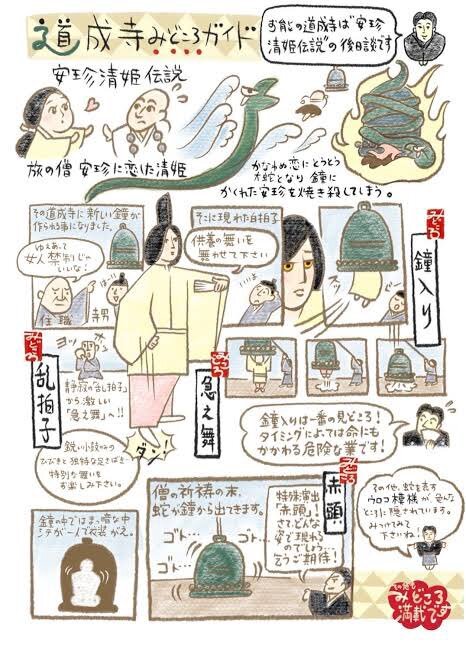 道成寺みどころガイド
お能の道成寺は"安珍
清姫伝説"の後日談です
安珍清姫伝説
旅の僧 安珍に恋した清姫
かなわぬ恋にとうとう
大蛇となり 鐘に
かくれた安珍を焼き殺してしまう。
その道成寺に新しい鐘が
作られる事になりました。
ゆえあって
女人禁制じゃ
いいな!
はーい
住職
寺男
そこに現れた白拍子
供養の舞いを
舞わせて下さい
いいよ
みどころ
鐘入り
みどころ
乱拍子
ヨッ
ホッ
ポン
静寂の「乱拍子」
から激しい
「急之舞」へ!!
みどころ
急之舞
ダン!
鋭い小鼓のみの
ひびきと独特な足さばき
特別な舞いを
お楽しみ下さい。
鐘入りは一番の見どころ!
タイミングによっては命にも
かかわる危険な業です!
鐘の中ではまっ暗な中
シテが一人で衣装がえ。
僧の祈祷の末、
蛇が鐘から出てきます。
ゴト…
ゴト…
ゴト…
みどころ
赤頭
特殊演出
「赤頭」!
さて、どんな
姿で現れる
のでしょう
乞うご期待!
その他、蛇を表す
ウロコ模様が色んな
ところに隠されています。
みつけてみて
下さいね!
その他も
みどころ
満載です